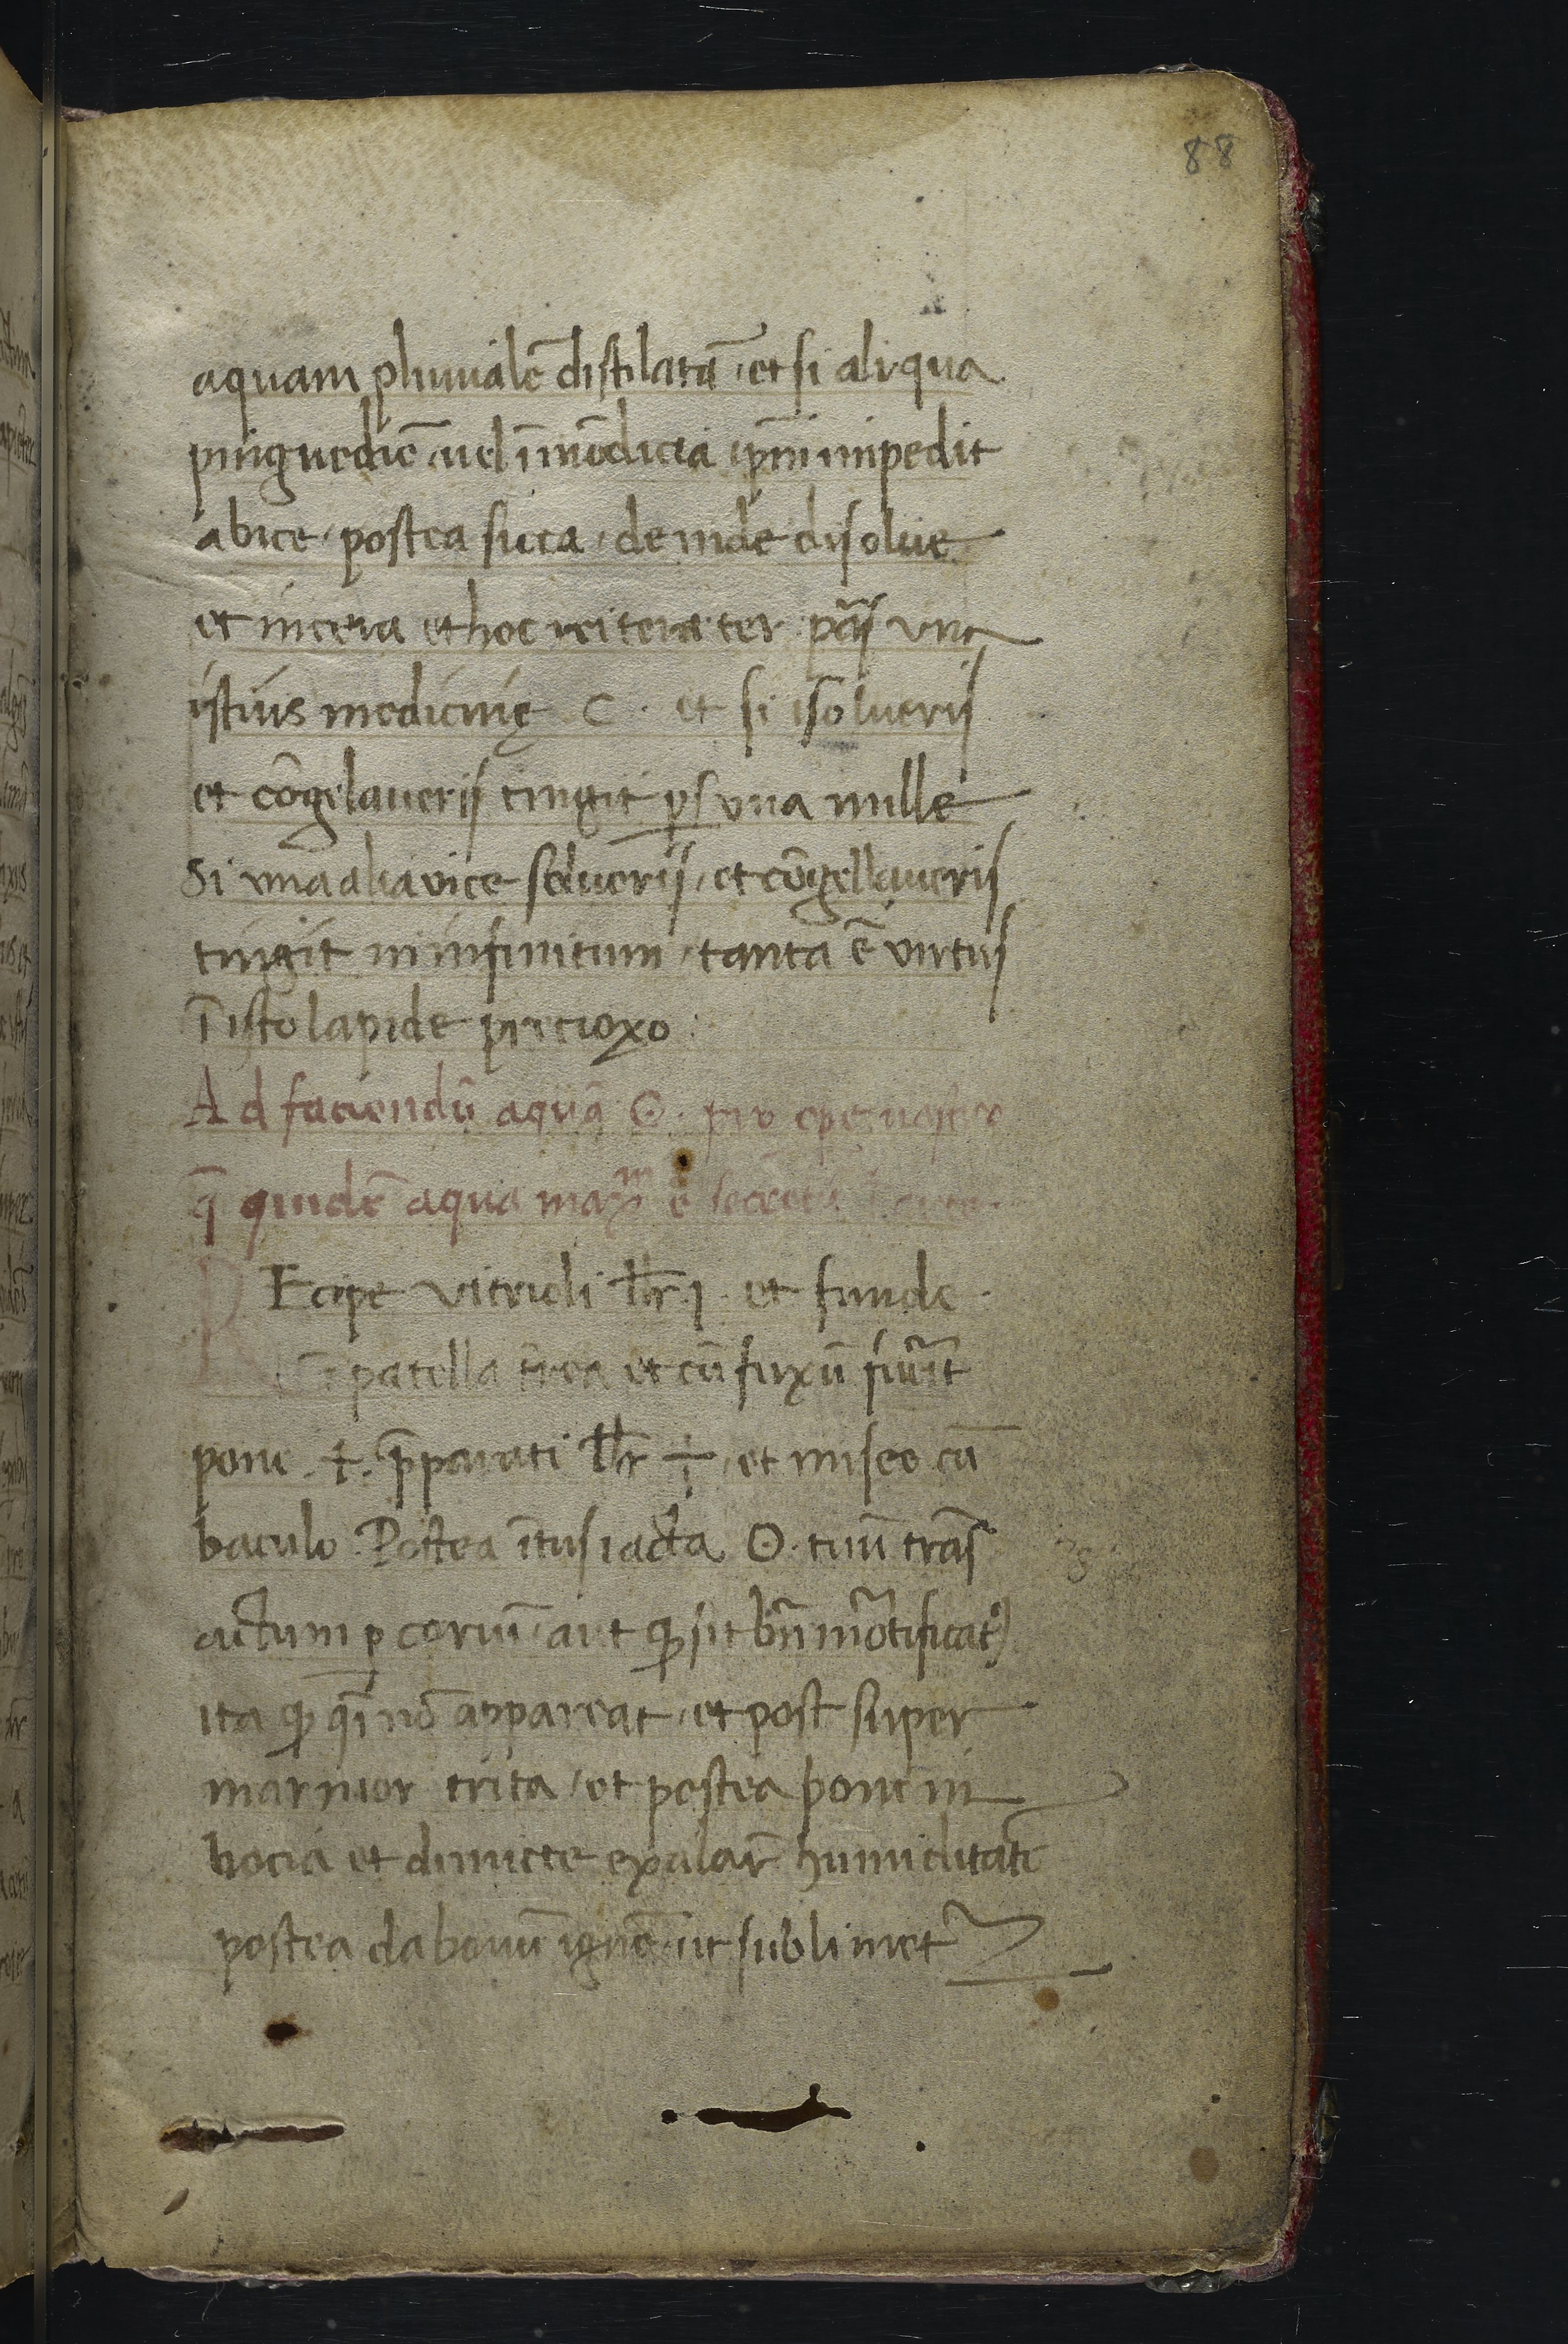 88
aquam pluuialē distilatā, et si aliqua
pinguedīe, uel ī mūdicia ipm̄ impedit
abice, postea sicca, deinde disolue
et incera et hoc reitera ter pars una
istius medicinę C. et si isolueris
et cōngelaueris tingit ps una mille
Si una alia vice solueris, et cōngellaueris
tingit in infinitum, tanta ē virtus
ī isto lapide precioxo.
Ad faciendū aquā ☉. pro ope nostro
q̄ quidē aqua maxm ē secretū ī arte
REcipe vitrioli lbr. j. et funde
ī patella frea et cū fuxū fuit̄
pone . ☿. p̄parati lbr ÷, et misce cū
baculo. Postea ītus iacta ☉. tuū trās
actum p coriū, aut ꝙ sit bn̄ mōtificat᷒
ita ꝙ q̄i nō appareat, et post super
marmor trita, et postea pone in
bocia et dimicte exalar̄ humiditatē
postea da bonū ignē ut sublimet᷒